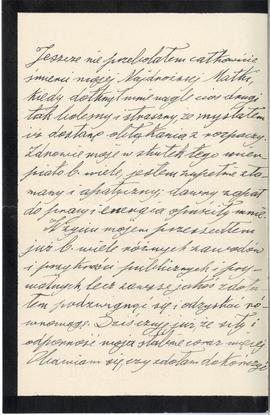 Jeszcze nie przebolałem całkowicie
śmierci mojej Najdroższej Matki,
kiedy dotknął mnie nagle cios drugi
tak bolesny i straszny, że myślałem
iż dostanę obłąkania z rozpaczy.
Zdrowie moje w skutek tego ucier
piało b. wiele, jestem zupełnie zła
many i apatyczny; dawny zapał
do pracy i energia opuściły mnie.
W życiu mojem przeszedłem
już b. wiele różnych zawodów
i przykrości publicznych i pry-
watnych lecz zawsze jakoś zdoła
łem podźwignąć się i odzyskać ró-
wnowagę. Dziś czuję już, że siły i
odporność moja słabnie coraz więcej
Obawiam się, czy zdołam dokończyć